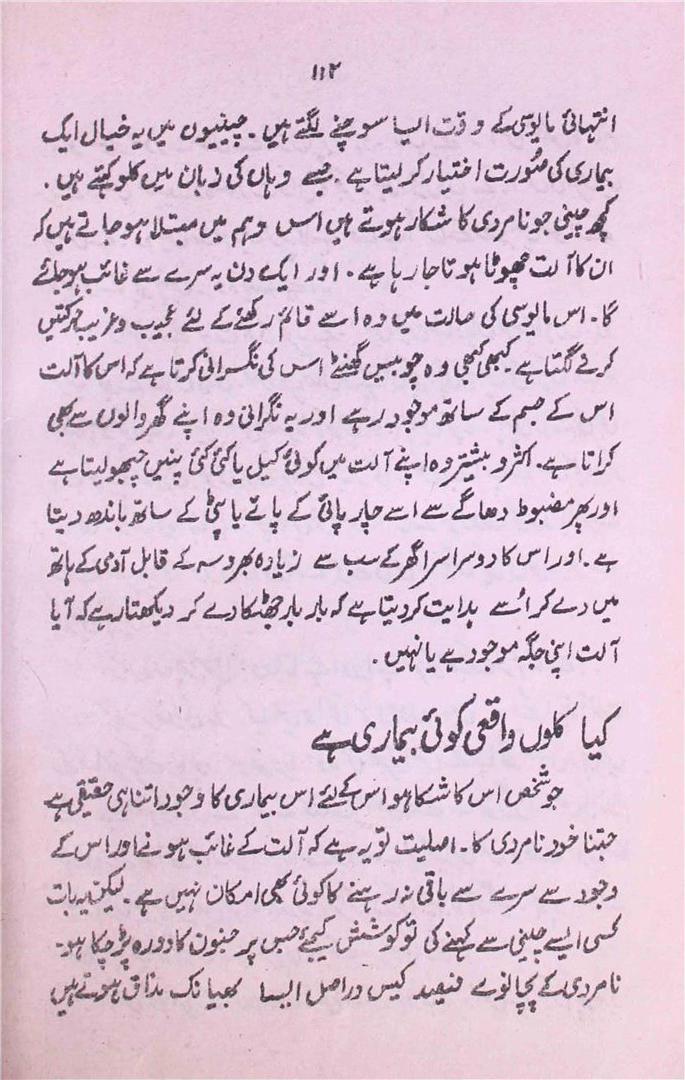 ۱۱۲
انتہائی مایوسی کے وقت ایسا سوچنے لگتے ہیں۔ چینیوں میں یہ خیال ایک
بیماری کی صُورت اختیار کر لیتا ہے۔ جسے وہاں کی زبان میں کلو کہتے ہیں۔
کچھ چینی جو نامردی کا شکار ہوتے ہیں اس وہم میں مبتلا ہو جاتے ہیں کہ
ان کا آلت چھوٹا ہوتا جا رہا ہے۔ اور ایک دن یہ سرے سے غائب ہو جائے
گا۔ اس مایوسی کی حالت میں وہ اسے قائم رکھنے کے لئے عجیب و غریب حرکتیں
کرنے لگتا ہے۔ کبھی کبھی وہ چوبیس گھنٹے اس کی نگرانی کرتا ہے کہ اس کا آلت
اس کے جسم کے ساتھ موجود رہے اور یہ نگرانی وہ اپنے گھر والوں سے بھی
کراتا ہے۔ اکثر و بیشتر وہ اپنے آلت میں کوئی کیل یا کئی کئی پنیں چبھو لیتا ہے
اور پھر مضبوط دھاگے سے اسے چارپائی کے پائے یا پٹی کے ساتھ باندھ دیتا
ہے۔ اور اس کا دوسرا سرا گھر کے سب سے زیادہ بھروسہ کے قابل آدمی کے ہاتھ
میں دے کر اُسے ہدایت کر دیتا ہے کہ بار بار جھٹکا دے کر دیکھتا رہے کہ آیا
آلت اپنی جگہ موجود ہے یا نہیں۔
کیا کلوں واقعی کوئی بیماری ہے
جو شخص اس کا شکا ہو اس کے لئے اس بیماری کا وجود اتنا ہی حقیقی ہے
جتنا خود نامردی کا۔ اصلیت تو یہ ہے کہ آلت کے غائب ہونے اور اس کے
وجود سے سرے سے باقی نہ رہنے کا کوئی بھی امکان نہیں ہے۔ لیکن یہ بات
کسی ایسے چینی سے کہنے کی تو کوشش کیجئے جس پر جنون کا دورہ پڑ چکا ہو۔
نامردی کے پچانوے فیصد کیس دراصل ایسا بھیانک مذاق ہوتے ہیں